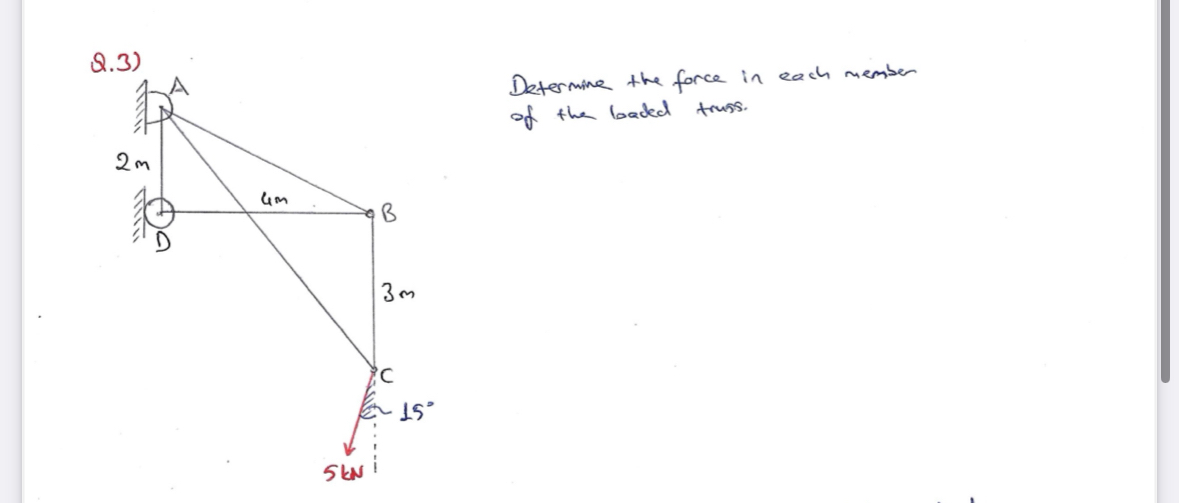 Q.3)
A
Determine the force in each member
of the loaded truss.
2m
4m
B
D
3m
C
15°
5kN